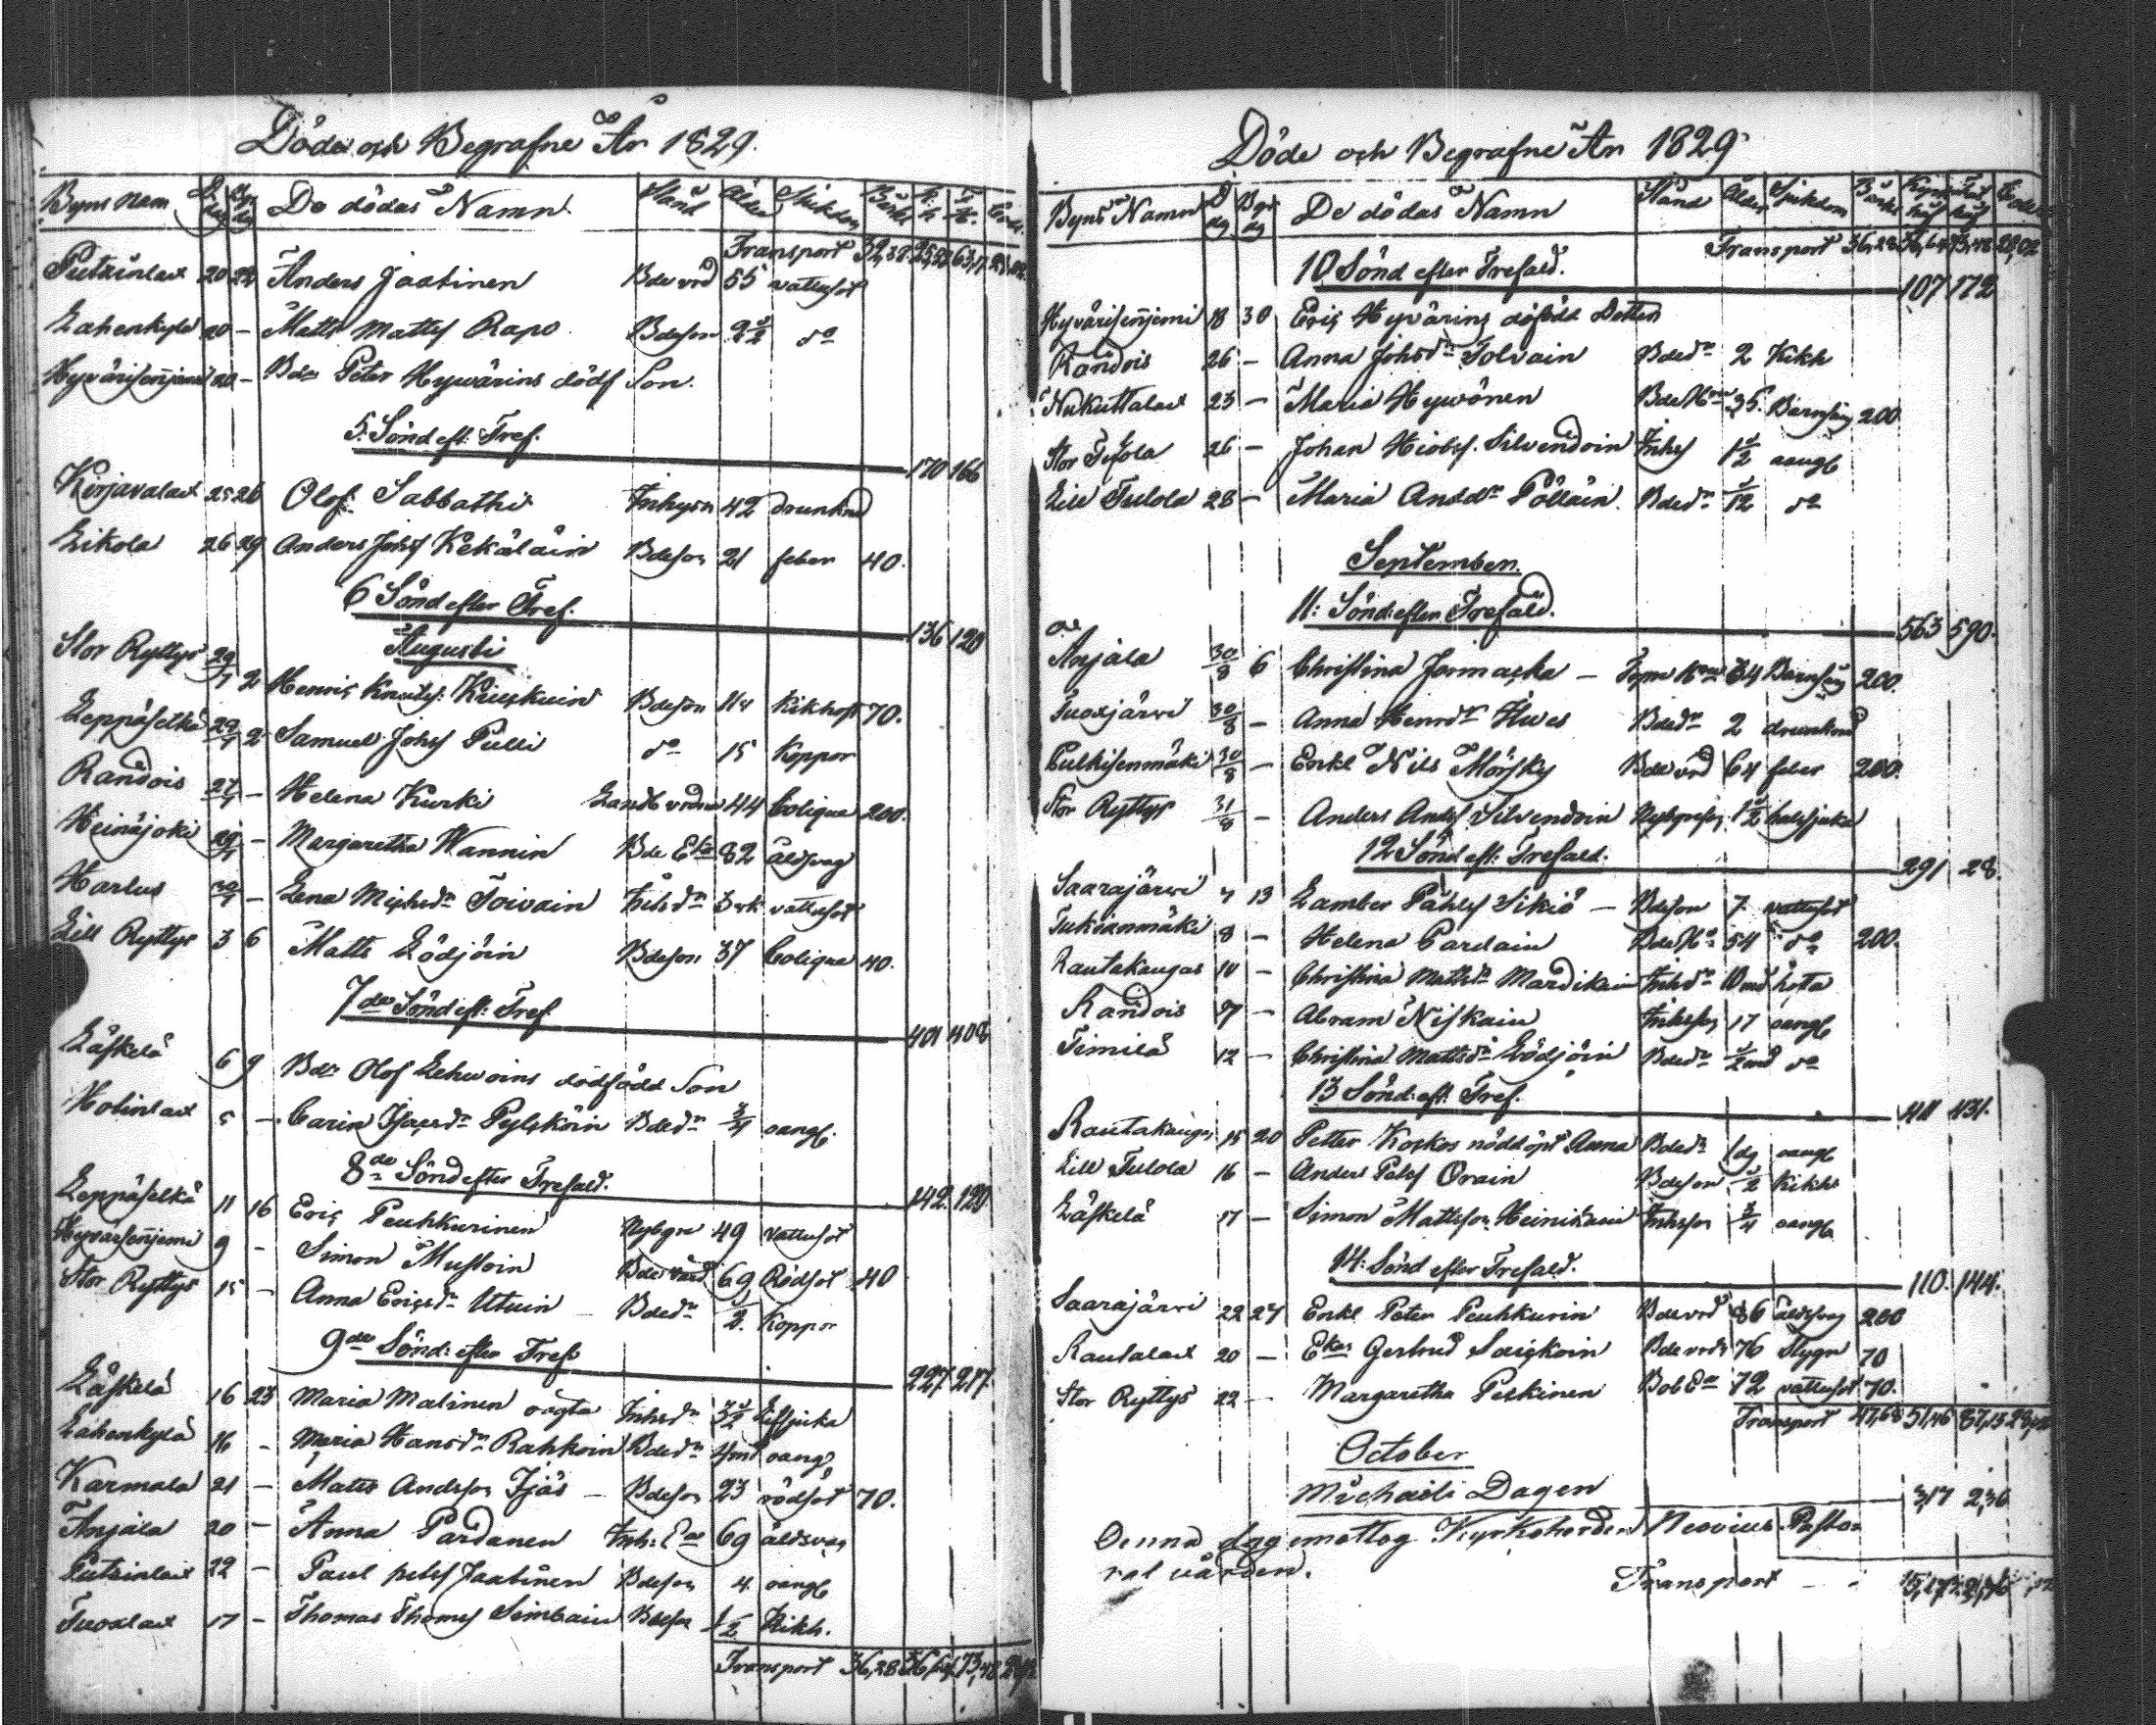 Döde och Begrafne År 1829.
Byns Namn De dödas Namn Stånd Ålder Sjukdom
Transport
Putsinlax 20 22 Anders Jaatinen Bde vrd 55 vattusot
Lahenkylä 20 – Matts Matts Rapo Bdeson do
Hyvärisenjemi 20 – Bdn Peter Hywärins dödf Son.
5. Sönd eft: Tref.
170 166
Kirjavalax 25 26 Olof Sabbathi Inhysn 42 drunknad
Likola 26 29 Anders Johsf Kekäläin Bdeson 21 feber 40.
6 Sönd efter Tref.
136 120
Augusti
Stor Ryttys 29/7 2 Henric Knutsf: Kiuskuin Bdeson 14 Kikhost 70.
Leppäselkä 29/7 2 Samuel Johsf Pulli do 15 Koppor
Randois 27/7 – Helena Kurki Landb vrdn 44 Colique 200.
Heinäjoki 29/7 – Margaretha Wannin Bde Eka 82 åldswag
Harlus 30/7 – Lena Michsdr Toivain Inhsdr 3 vattusot
Lill Ryttys 3 6 Matts Lödjöin Bdeson 37 Colique 40.
7de Sönd eft: Tref.
401 408
Läskelä 6 9 Bdn Olof Lehwoins dödfödd Son
Hotinlax 5 – Carin Isacsdr Pylsköin Bdedr 3/4 oangf.
8de Sönd efter Trefald.
142. 120
Leppäselkä 11 16 Eric Peuhkurinen Nybgr 49 Vattusot
Hyvärisenjemi 9 – Simon Mustoin Bde värd 69 Rödsot 40
Stor Ryttys 15 – Anna Ericsdr Utuin Bdedr 1/2. Koppor
9de Sönd: efter Tref.
227. 217.
Läskelä 16 23 Maria Malinen oägta Inhsdr
Lahenkylä 16 – Maria Hansdr Rahkoin Bdedr 4 mt oang
Karmala 21 – Matts Andsson Ijäs – Bdeson 23 rödsot 70.
Anjala 20 – Anna Pardanen Inh: Ea 69 åldswag
Putsinlax 22 – Paul petsf Jaatinen Bdeson 4 oangf
Tuoxlax 17 – Thomas Thomsf Simbain Bdeson 1/2 Kikh.
Transport 36,28
Döde och Begrafne År 1829
Byns Namn De dödas Namn Stånd Ålder Sjukdom
Transport
10 Sönd efter Trefald.
107 172
Hyvärisenjemi 18 30 Eric Hyvärins dödfödd Dotter
Randois 26 – Anna Johsdr Tolvain Bdedr 2 Kikh
Nukuttalax 23 – Maria Hywönen 35. Barnsäng 200.
Stor Tejola 26 – Johan Hiobsf. Silvendoin Inhsf oangf
Lill Tulola 28 – Maria Anddr Pöllain. Bdedr do
September.
11: Sönd: efter Trefald.
563 590.
Anjala 30/8 6 Christina Jormacka – Barnsäng 200.
Tuoxjärvi 30/8 – Anna Henrdr Huves Bdedr 2 drunknad
Pulkisenmäki 30/8 – Enkl Nils Mörsky Bde vrd 64 feber 200.
Stor Ryttys 31/8 – Anders Andsf Silvendoin halssjuka
12 Sönd eft: Trefald.
291 28.
Saarajärvi 7 13 Lamber Påhlsf Sikiö – Bdeson 7. vattusot
Tukianmäki 8 – Helena Pardain 54 do 200.
Rautakangas 10 – Christina Mattsdr Mardikain Inhsdr
Randois 7 – Abram Niskain Inhsson 17 oangf
Timilä 12 – Christina Mattsdr Lödjöin Bdedr do
13 Sönd: eft. Tref.
411 431.
Rautakangas 15 20 Petter Koskos nöddöpt Anna Bdedr 1 dg oangf
Lill Tulola 16 – Anders Petsf Orain Bdeson 1/2 Kikh:
Läskelä 17 – Simon Mattsson Heinikain Inhsson 3/4 oangf
14: Sönd efter Trefald.
110. 144.
Saarajärvi 22 27 Enkl Peter Peuhkurin Bde vrd 86 åldswag 200
Rautalax 20 – Ekan Gertrud Saickoin Bde vrd 76 Stygn 70
Stor Ryttys 22 – Margaretha Peskinen 72 vattusot 70.
Transport 47,68 51,46 87,15
October
Michaeli Dagen
3,17 2,36
Denna dag emottog Kyrkoherden Neovius Pasto-
ral vården.
Transport –